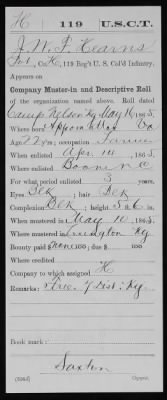 H | 119 | U.S.C.T.
J. W. F. Kearns
Pvt, Co. H, 119 Reg't U. S. Col'd Infantry.
Appears on
Company Muster-in and Descriptive Roll
of the organization named above. Roll dated
Camp Nelson Ky May 16, 1865.
Where born Appomattox Va
Age 24 y'rs; occupation Farmer
When enlisted Apr 14, 1865.
Where enlisted Boone
For what period enlisted 3 years.
Eyes Blk; hair Blk
Complexion Blk; height 5 ft. 6 in.
When mustered in May 10, 1865.
Where mustered in Lexington Ky
Bounty paid $ none 100; due $ 100
Where credited
Company to which assigned H
Remarks: Free 7 Dist: Ky
Book mark:
Saxton
Copyist.